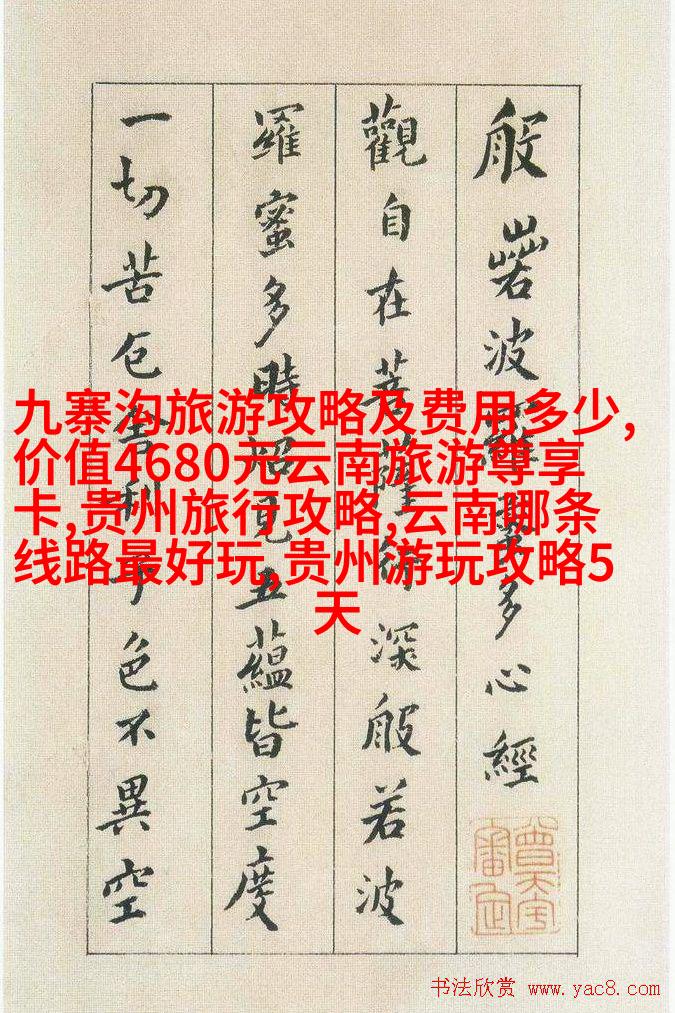 般若波羅蜜多心經
觀自在菩薩行深般若波
羅蜜多時照見五蘊皆空度
一切苦厄舍利子色不異空
九寨沟旅游攻略及费用多少,
价值4680元云南旅游尊享
卡,贵州旅行攻略,云南哪条
线路最好玩,贵州游玩攻略5
天
书法欣赏 www.yac8.com